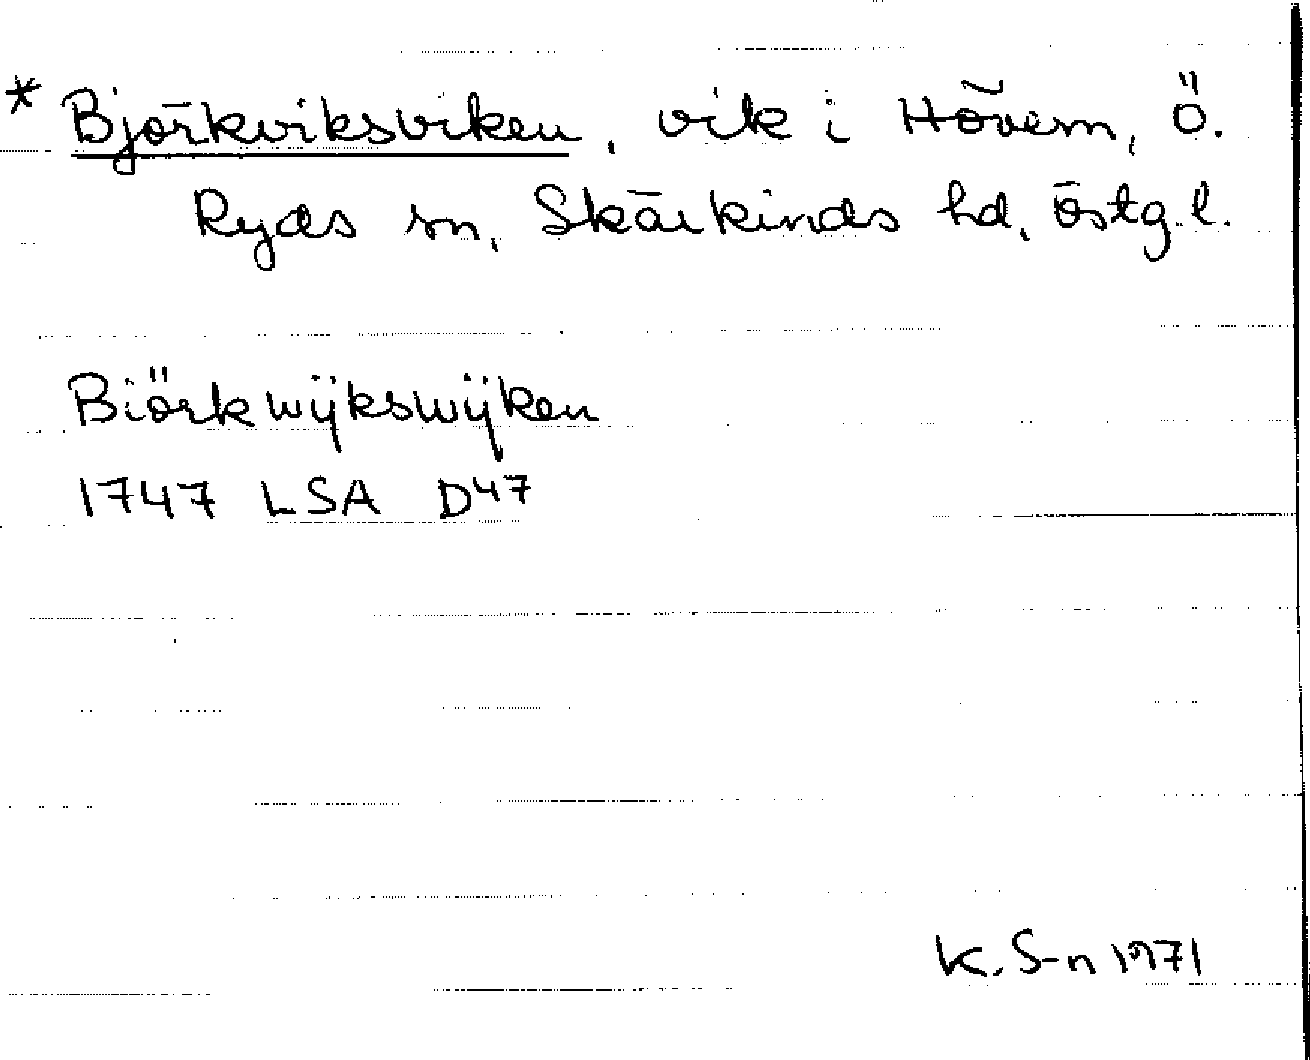 * Björkviksviken, vik i Hövern, Ö.
Ryds sn, Skärkinds hd, Östg.l.
Biörkwÿkswÿken
1747 LSA D47
K. S-n 1971